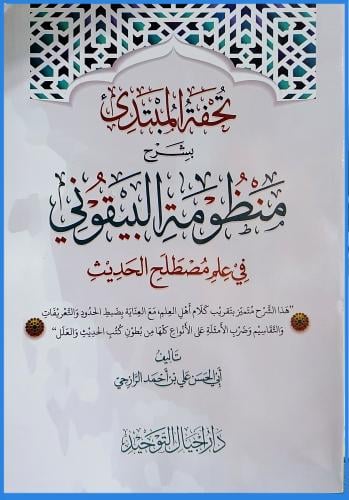 تُحْفَةُ المُبْتَدِئ
بِشَرْحِ
مَنْظُومَةِ البَيْقُونِي
فِي عِلْمِ مُصْطَلَحِ الحَدِيثِ
"هَذَا الشَّرْحُ مُتَمَيِّز بِتَقْرِيبِ كَلَامِ أَهْلِ العِلْمِ، مَعَ العِنَايَةِ بِضَبْطِ الحُدُودِ وَالتَّعْرِيفَاتِ
وَالتَّقَاسِيمِ وَضَرْبِ الأَمْثِلَةِ عَلَى الأَنْوَاعِ كُلِّهَا مِنْ بُطُونِ كُتُبِ الحَدِيثِ وَالعِلَلِ"
تَأْلِيفُ
أَبِي الحَسَن عَلِي بْن أَحْمَد الرَّازِحِي
دار أجيال التوحيد